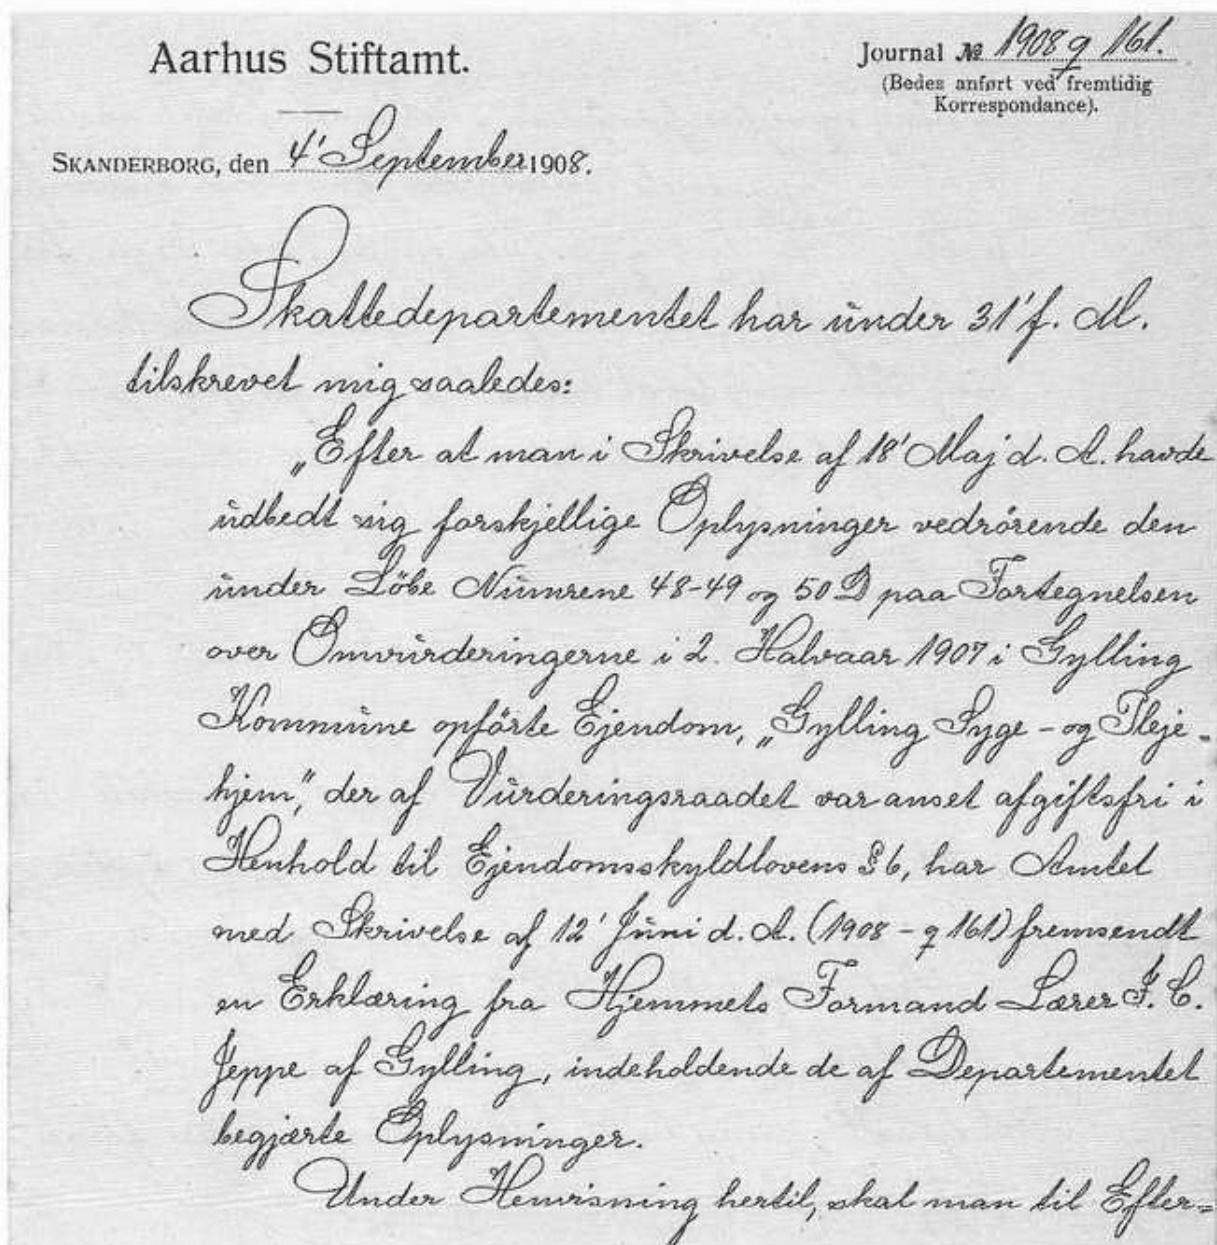 Aarhus Stiftamt.
Journal № 1908 q 161.
(Bedes anført ved fremtidig
Korrespondance).
SKANDERBORG, den 4' September 1908.
Skattedepartementet har under 31' f. M.
tilskrevet mig saaledes:
„Efter at man i Skrivelse af 18' Maj d. A. havde
udbedt sig forskjellige Oplysninger vedrörende den
under Löbe Numrene 48-49 og 50 D paa Fortegnelsen
over Omvurderingerne i 2. Halvaar 1907 i Gylling
Kommune opförte Ejendom, „Gylling Syge- og Pleje-
hjem”, der af Vurderingsraadet var anset afgiftsfri i
Henhold til Ejendomsskyldlovens § 6, har Amtet
med Skrivelse af 12' Juni d. A. (1908 - q 161) fremsendt
en Erklæring fra Hjemmets Formand Lærer J. C.
Jeppe af Gylling, indeholdende de af Departementet
begjærte Oplysninger.
Under Henvisning hertil, skal man til Efter=